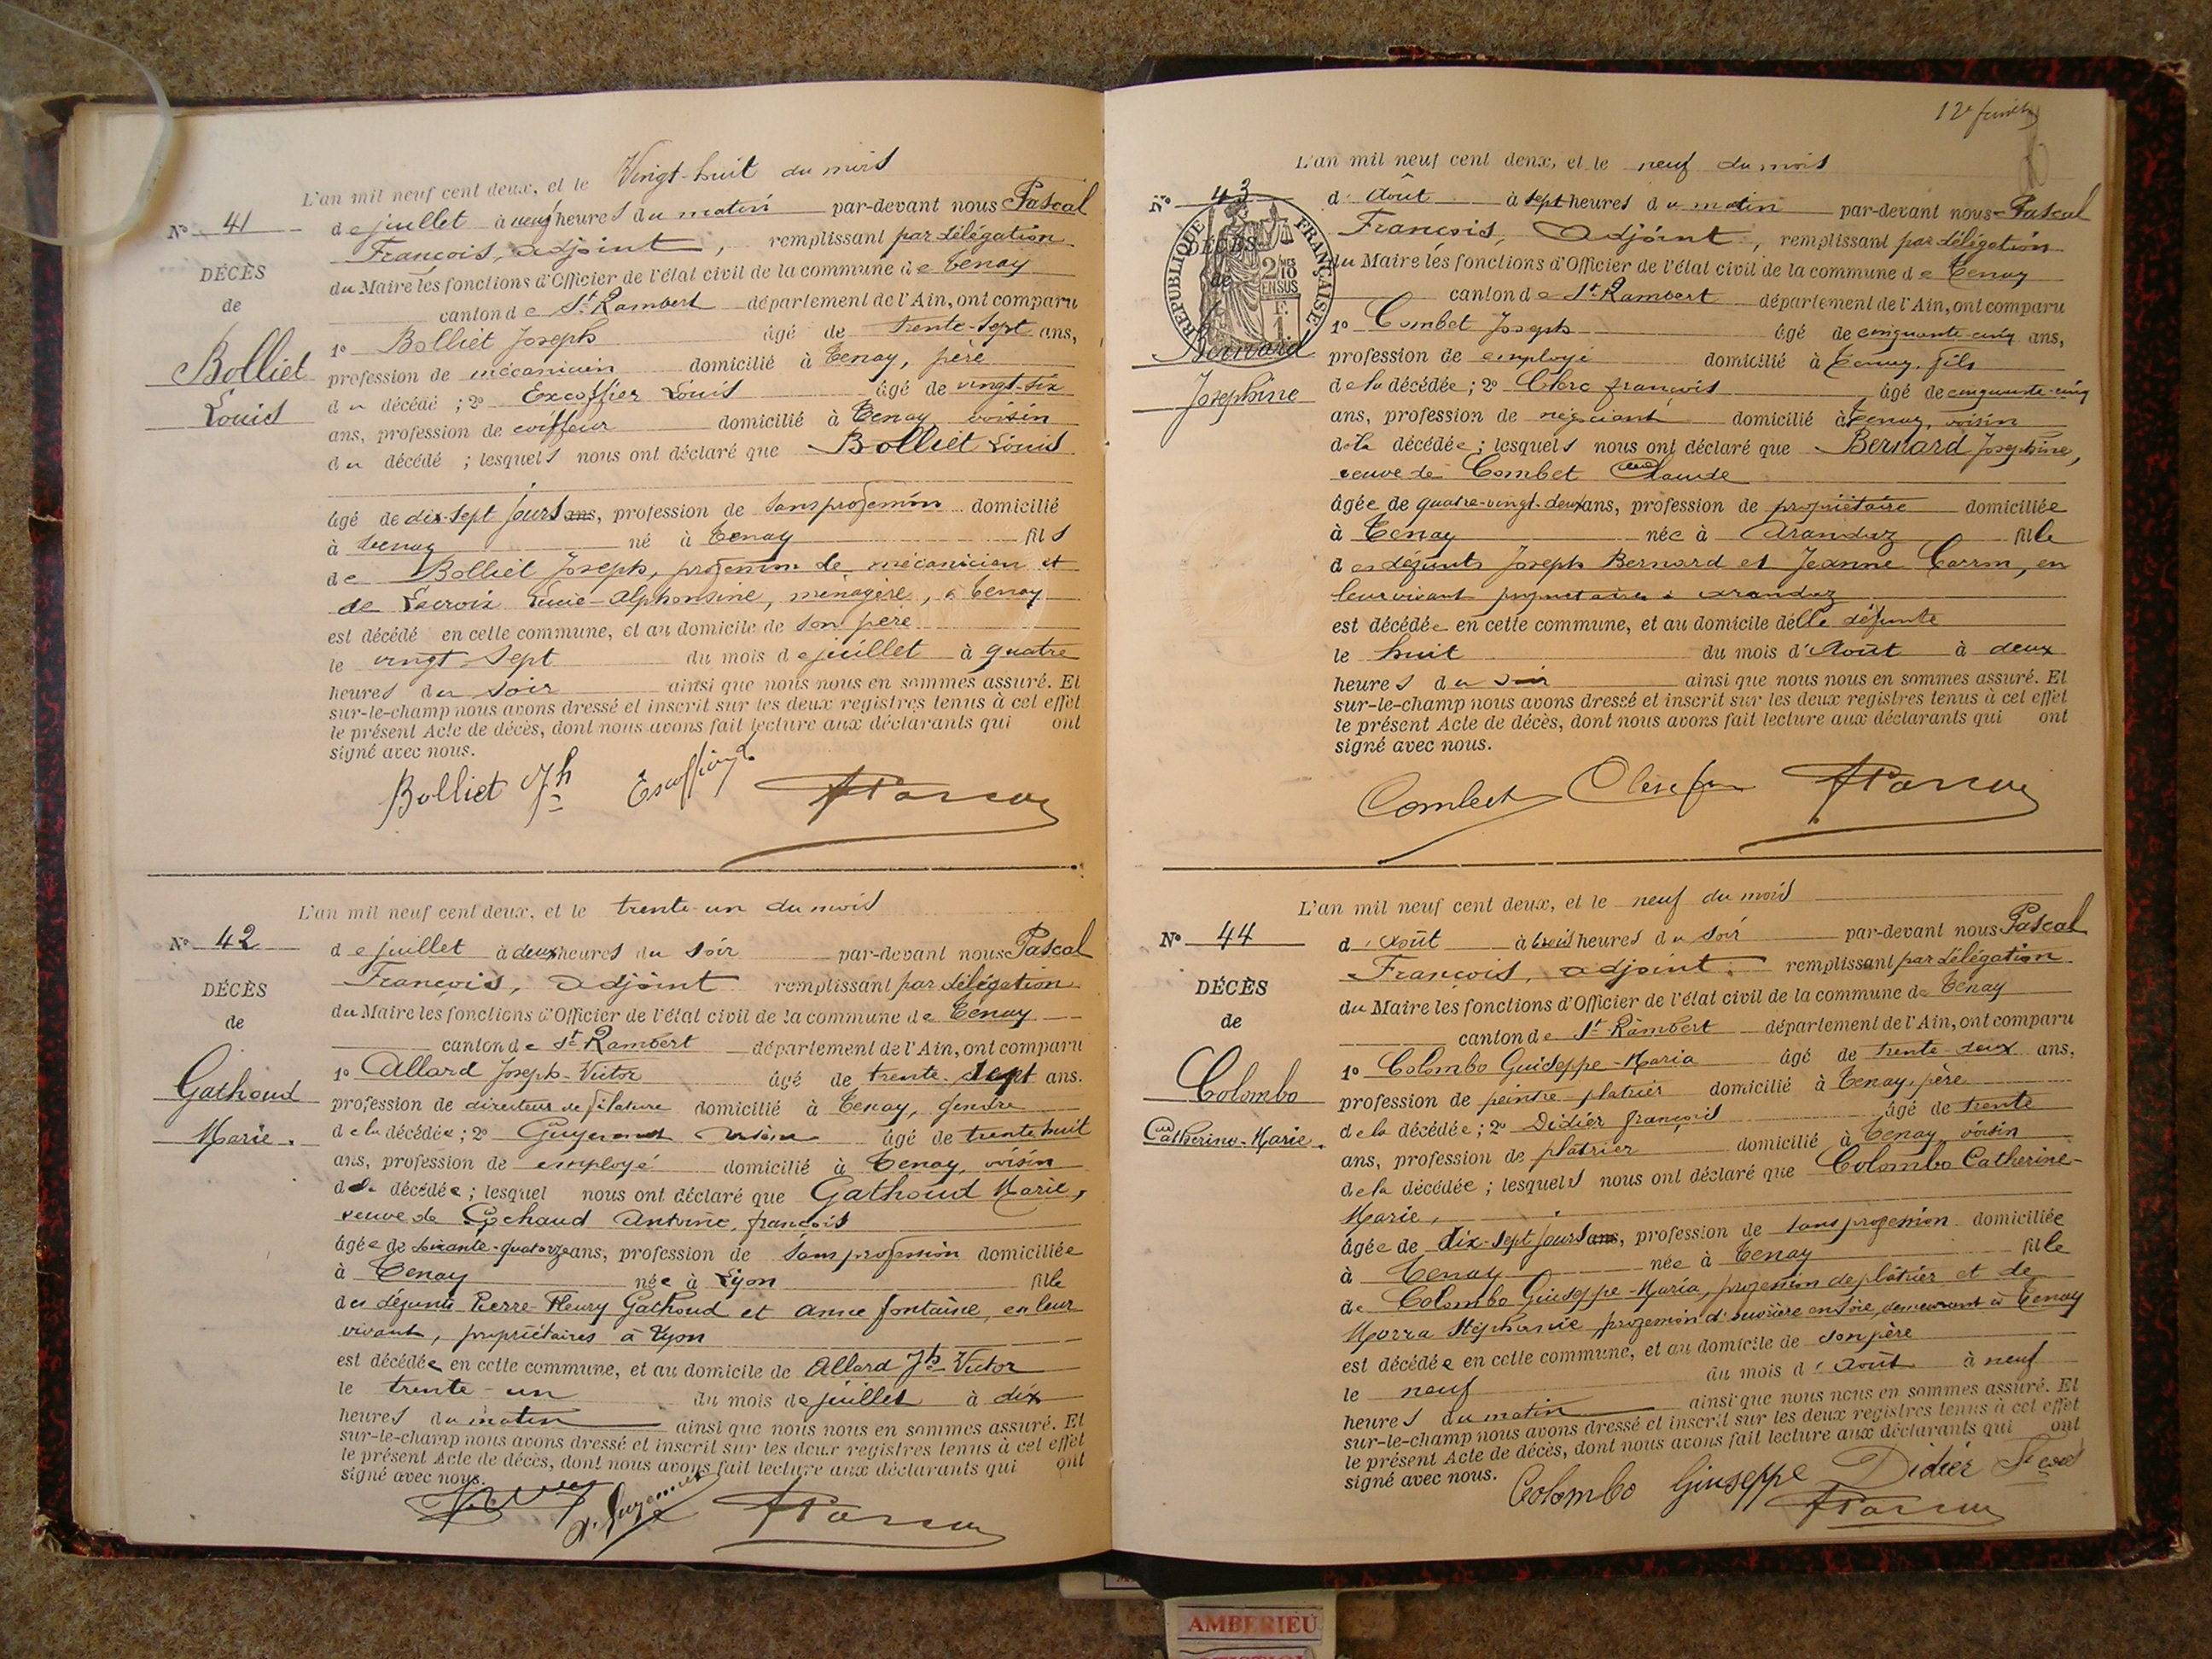 L'an mil neuf cent deux, et le Vingt-huit du mois
N° 41
de juillet à neuf heures du matin par-devant nous Pascal
François, adjoint, remplissant par délégation
DÉCÈS
du Maire les fonctions d'Officier de l'état civil de la commune de Tenay
de
canton de St Rambert département de l'Ain, ont comparu
1° Bolliet Joseph âgé de trente-sept ans,
Bolliet
profession de mécanicien domicilié à Tenay, père
Louis
du décédé ; 2° Excoffier Louis âgé de vingt-six
ans, profession de coiffeur domicilié à Tenay voisin
du décédé ; lesquels nous ont déclaré que Bolliet Louis
âgé de dix-sept jours ans, profession de sans profession domicilié
à Tenay né à Tenay fils
de Bolliet Joseph, profession de mécanicien et
de Lacroix Lucie-Alphonsine, ménagère, à Tenay
est décédé en cette commune, et au domicile de son père
le vingt sept du mois de juillet à quatre
heures du soir ainsi que nous nous en sommes assuré. Et
sur-le-champ nous avons dressé et inscrit sur les deux registres tenus à cet effet
le présent Acte de décès, dont nous avons fait lecture aux déclarants qui ont
signé avec nous.
Bolliet Jh
L'an mil neuf cent deux, et le trente-un du mois
N° 42
de juillet à deux heures du soir par-devant nous Pascal
François, adjoint remplissant par délégation
DÉCÈS
du Maire les fonctions d'Officier de l'état civil de la commune de Tenay
de
canton de St Rambert département de l'Ain, ont comparu
1° Allard Joseph-Victor âgé de trente-sept ans.
Gathoud
profession de directeur de filature domicilié à Tenay, gendre
Marie.
de la décédée ; 2° âgé de trente huit
ans, profession de employé domicilié à Tenay, voisin
de la décédée ; lesquel nous ont déclaré que Gathoud Marie,
veuve de Cochaud Antoine, françois
âgée de soixante-quatorze ans, profession de sans profession domiciliée
à Tenay née à Lyon fille
des défunts Pierre-Fleury Gathoud et Anne Fontaine, en leur
vivant, propriétaires à Lyon
est décédée en cette commune, et au domicile de Allard Jh Victor
le trente-un du mois de juillet à dix
heures du matin ainsi que nous nous en sommes assuré. Et
sur-le-champ nous avons dressé et inscrit sur les deux registres tenus à cet effet
le présent Acte de décès, dont nous avons fait lecture aux déclarants qui ont
signé avec nous.
12e
L'an mil neuf cent deux, et le neuf du mois
N° 43
d'Août à sept heures du matin par-devant nous Pascal
RÉPUBLIQUE FRANÇAISE
2 MES 10 EN SUS
1 F.
François, Adjoint, remplissant par délégation
DÉCÈS
du Maire les fonctions d'Officier de l'état civil de la commune de Tenay
de
canton de St Rambert département de l'Ain, ont comparu
1° Combet Joseph âgé de cinquante-cinq ans,
Bernard
profession de employé domicilié à Tenay, fils
Josephine
de la décédée ; 2° Clerc françois âgé de cinquante-cinq
ans, profession de négociant domicilié à Tenay, voisin
de la décédée ; lesquels nous ont déclaré que Bernard Josephine,
veuve de Combet Claude
âgée de quatre-vingt-deux ans, profession de propriétaire domiciliée
à Tenay née à Arandaz fille
des défunts Joseph Bernard et Jeanne Carron, en
leur vivant propriétaires à Arandaz
est décédée en cette commune, et au domicile de lle défunte
le huit du mois d'Août à deux
heures du soir ainsi que nous nous en sommes assuré. Et
sur-le-champ nous avons dressé et inscrit sur les deux registres tenus à cet effet
le présent Acte de décès, dont nous avons fait lecture aux déclarants qui ont
signé avec nous.
Combet
L'an mil neuf cent deux, et le neuf du mois
N° 44
d'Août à trois heures du soir par-devant nous Pascal
François, adjoint, remplissant par délégation
DÉCÈS
du Maire les fonctions d'Officier de l'état civil de la commune de Tenay
de
canton de St Rambert département de l'Ain, ont comparu
1° Colombo Guiseppe-Maria âgé de trente-deux ans,
Colombo
profession de peintre platrier domicilié à Tenay, père
Catherine-Marie.
de la décédée ; 2° Didier françois âgé de trente
ans, profession de plâtrier domicilié à Tenay voisin
de la décédée ; lesquels nous ont déclaré que Colombo Catherine-
Marie,
âgée de dix-sept jours ans, profession de sans profession domiciliée
à Tenay née à Tenay fille
de Colombo Giuseppe-Maria, profession de plâtrier et de
Marra Stéphanie, profession d'ouvrière en soie, demeurant à Tenay
est décédée en cette commune, et au domicile de son père
le neuf du mois d'Août à neuf
heures du matin ainsi que nous nous en sommes assuré. Et
sur-le-champ nous avons dressé et inscrit sur les deux registres tenus à cet effet
le présent Acte de décès, dont nous avons fait lecture aux déclarants qui ont
signé avec nous.
Colombo Giuseppe Didier
AMBERIEU